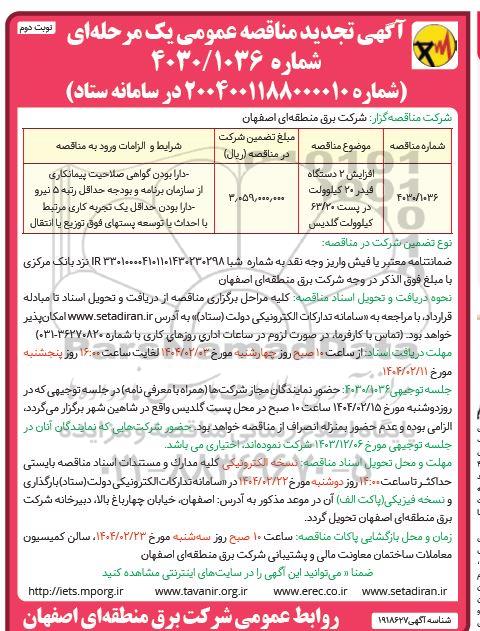 نوبت دوم
آگهی تجدید مناقصه عمومی یک مرحله‌ای
شماره ۴۰۳۰/۱۰۳۶
(شماره ۲۰۰۴۰۰۱۱۸۸۰۰۰۰۱۰ در سامانه ستاد)
شرکت مناقصه‌گزار: شرکت برق منطقه‌ای اصفهان
شماره مناقصه
موضوع مناقصه
مبلغ تضمین شرکت در مناقصه (ریال)
شرایط و الزامات ورود به مناقصه
۴۰۳۰/۱۰۳۶
افزایش ۲ دستگاه
فیدر ۲۰ کیلوولت
در پست ۶۳/۲۰
کیلوولت گلدیس
۳,۰۵۹,۰۰۰,۰۰۰
-دارا بودن گواهی صلاحیت پیمانکاری
از سازمان برنامه و بودجه حداقل رتبه ۵ نیرو
-دارا بودن حداقل یک تجربه کاری مرتبط
با احداث یا توسعه پستهای فوق توزیع یا انتقال
نوع تضمین شرکت در مناقصه:
ضمانتنامه معتبر یا فیش واریز وجه نقد به شماره شبا IR ۳۳۰۱۰۰۰۰۴۱۰۱۱۰۱۴۳۰۲۳۰۲۹۸ نزد بانک مرکزی
با مبلغ فوق الذکر در وجه شرکت برق منطقه‌ای اصفهان
نحوه دریافت و تحویل اسناد مناقصه: کلیه مراحل برگزاری مناقصه از دریافت و تحویل اسناد تا مبادله
قرارداد، با مراجعه به «سامانه تدارکات الکترونیکی دولت (ستاد)» به آدرس www.setadiran.ir امکان‌پذیر
خواهد بود. (تماس با کارفرما، در صورت لزوم در ساعات اداری روزهای کاری با شماره ۳۶۲۷۰۸۲۰-۰۳۱)
مهلت دریافت اسناد: از ساعت ۱۰ صبح روز چهارشنبه مورخ ۱۴۰۴/۰۲/۰۳ لغایت ساعت ۱۶:۰۰ روز پنجشنبه
مورخ ۱۴۰۴/۰۲/۱۱.
جلسه توجیهی ۴۰۳۰/۱۰۳۶: حضور نمایندگان مجاز شرکت‌ها (همراه با معرفی نامه) در جلسه توجیهی که در
روز دوشنبه مورخ ۱۴۰۴/۰۲/۱۵ ساعت ۱۰ صبح در محل پست گلدیس واقع در شاهین شهر برگزار می‌گردد،
الزامی بوده و عدم حضور بمنزله انصراف از مناقصه خواهد بود. حضور شرکت‌هایی که نمایندگان آنان در
جلسه توجیهی مورخ ۱۴۰۳/۱۲/۰۶ شرکت نموده‌اند، اختیاری می باشد.
مهلت و محل تحویل اسناد مناقصه: نسخه الکترونیکی کلیه مدارک و مستندات اسناد مناقصه بایستی
حداکثر تا ساعت ۱۴:۰۰ روز دوشنبه مورخ ۱۴۰۴/۰۲/۲۲ در «سامانه تدارکات الکترونیکی دولت (ستاد)» بارگذاری
و نسخه فیزیکی (پاکت الف) آن در موعد مذکور به آدرس: اصفهان، خیابان چهارباغ بالا، دبیرخانه شرکت
برق منطقه‌ای اصفهان تحویل گردد.
زمان و محل بازگشایی پاکات مناقصه: ساعت ۱۰ صبح روز سه‌شنبه مورخ ۱۴۰۴/۰۲/۲۳، سالن کمیسیون
معاملات ساختمان معاونت مالی و پشتیبانی شرکت برق منطقه‌ای اصفهان
ضمنا « می‌توانید این آگهی را در سایت‌های اینترنتی مشاهده کنید
http://iets.mporg.ir www.tavanir.org.ir www.erec.co.ir www.setadiran.ir
شناسه آگهی ۱۹۱۸۶۲۷
روابط عمومی شرکت برق منطقه‌ای اصفهان